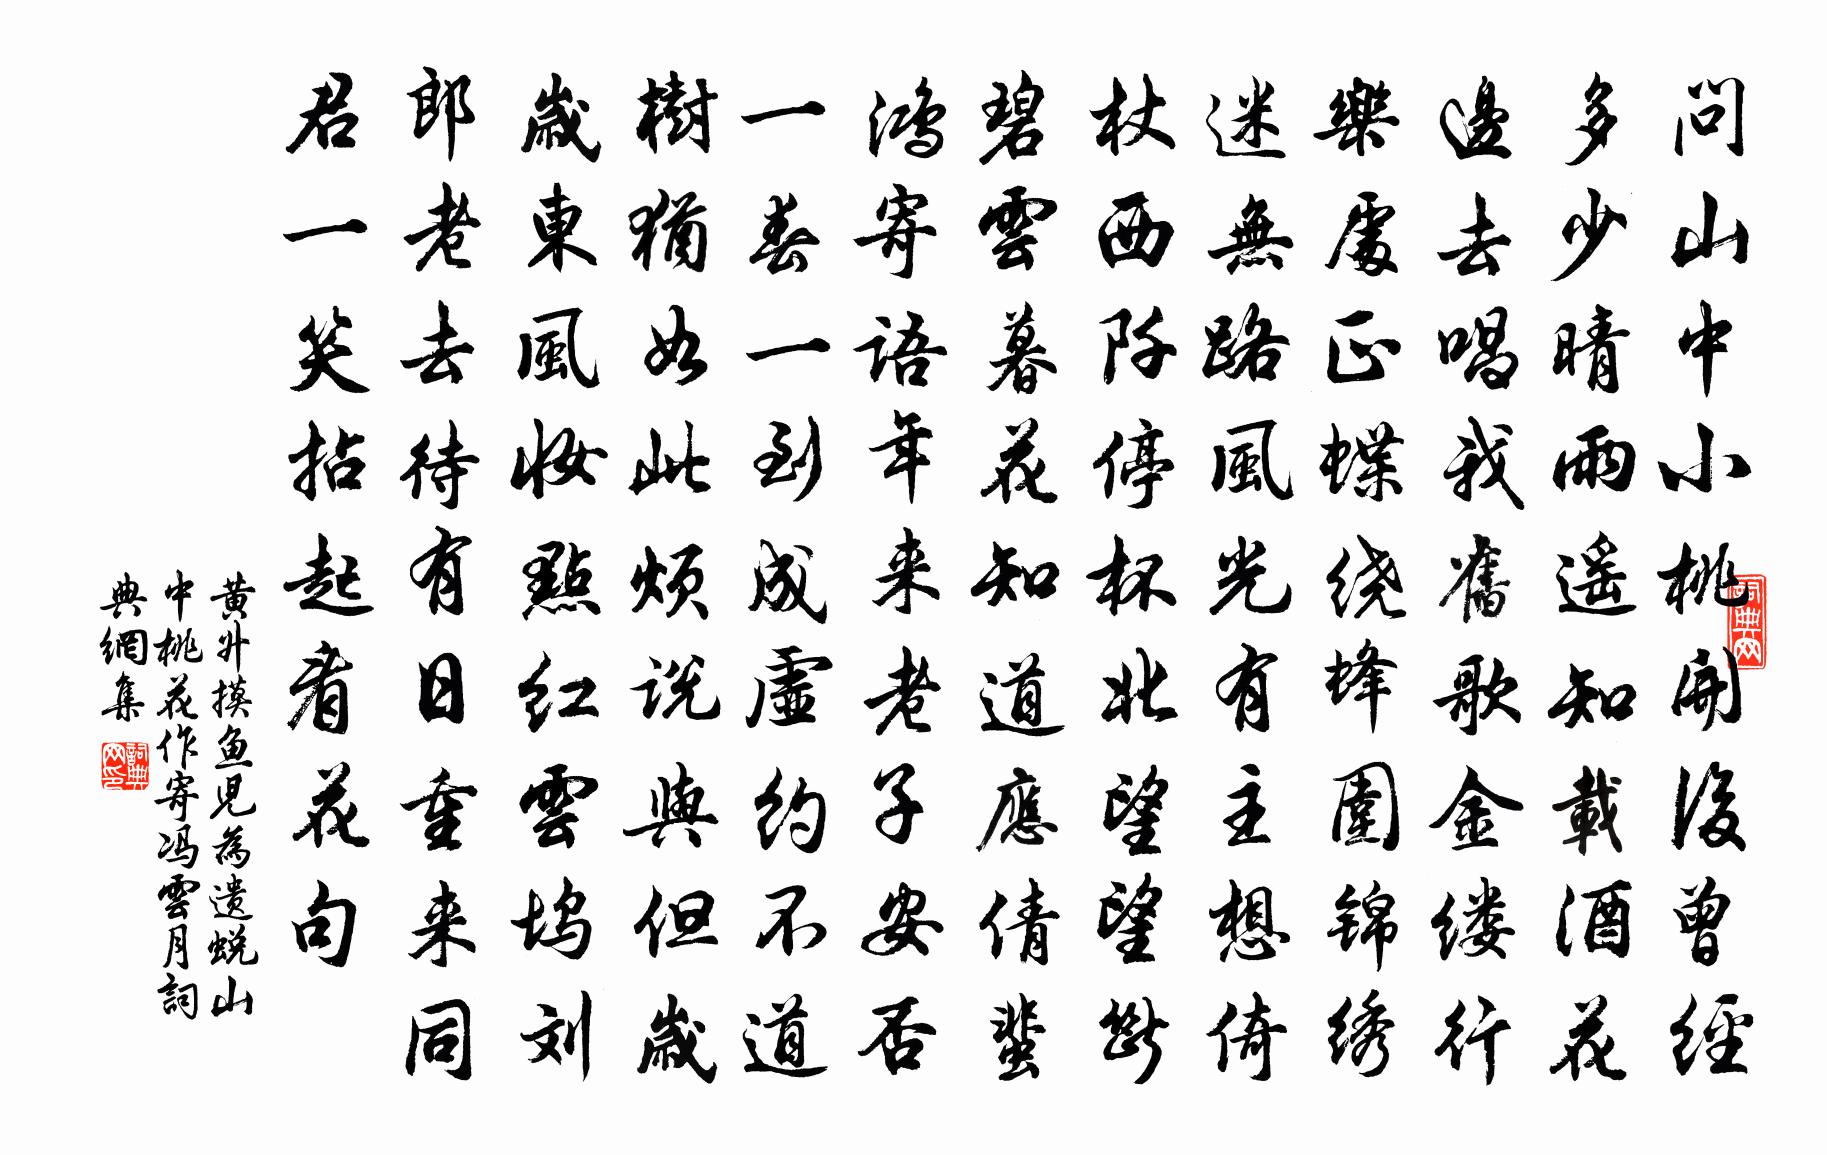 問山中小桃開後曾經
多少晴雨遥知載酒花
邊去唱我舊歌金缕行
樂處正蝶绕蜂圍锦绣
迷無路風光有主想倚
杖西阡停杯北望望断
碧雲暮花知道應倩蜚
鴻寄语年来老子安否
一春一到成虚约不道
樹猶如此烦说與但歲
歲東風妝點红雲坞刘
郎老去待有日重来同
君一笑拈起看花句
黄升摸鱼児為遗蜕山
中桃花作寄冯雲月詞
典網集
詞典网
詞典网印